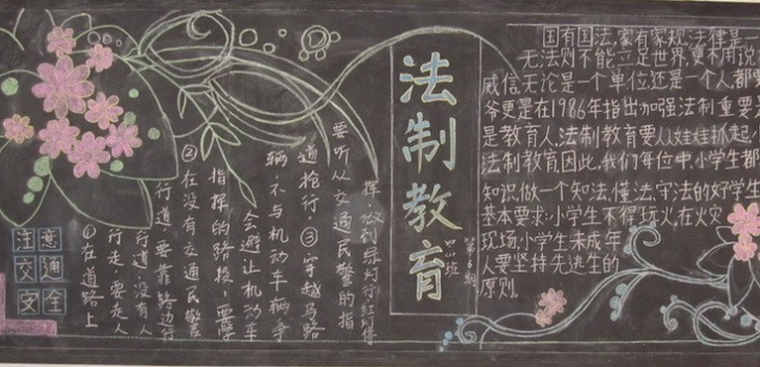 注意
交通
安全
①在道路上
行走,要走人
行道,没有人
行道,要靠路边行
②在没有交通民警
指挥的路段,要学
会避让机动车
辆,不与机动车辆争
道抢行。③穿越马路
要听从交通民警的指
挥,做到绿灯行红灯停
法制教育
班
第 期
国有国法,家有家规,法律是一
无法则不能立足世界,更不用说
威信,无论是一个单位还是一个人,都要
爷更是在1986年指出加强法制重要是
是教育人,法制教育要从娃娃抓起,小
法制教育,因此,我们每位中小学生都
知识,做一个知法,懂法,守法的好学生
基本要求:小学生不得玩火,在火灾
现场,小学生未成年
人要坚持先逃生的
原则。